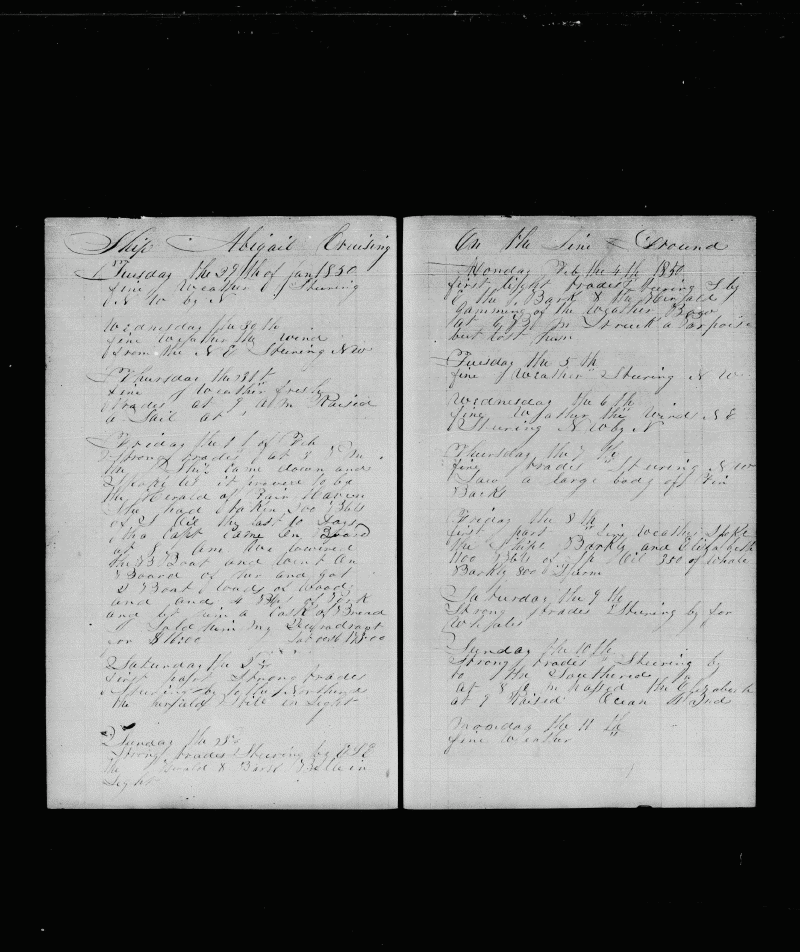 Ship Abigail Cruising
Tuesday the 29th of Jan 1850
fine Weather Steering
N W by N
Wednesday the 30th
fine Weather the Wind
from the N E Steering N W
Thursday the 31st
fine Weather fresh
trades at 9 A M Raised
a Sail at
Friday the 1st of Feb
strong trades at 8
the Ship came down and
Spoke us it proved to be
the Herald of Fair Haven
She had taken 300 Bbls
of S Oil the last 10 days
the Capt came on Board
at 9 am we lowered
the Boat and went on
Board of her and got
2 Boat loads of Wood
and and 4 Bbls of Pork
and of him a Cask of Bread
I Sold him my
for $16.00
Saturday the 2nd
first part Strong trades
Steering by to the Northerds
the Still in Sight
Sunday the 3rd
Strong trades Steering by
the Herald & Bark in
Sight
On the Line Ground
Monday Feb the 4th 1850
first light trades Steering by
the Bark & the
gamming of the Weather Bow
at P M Struck a Porpoise
but lost him
Tuesday the 5th
fine Weather Steering N W
Wednesday the 6th
fine Weather the Wind N E
Steering N W by N
Thursday the 7th
fine trades Steering N W
Saw a large body of Fin
Backs
Friday the 8th
first part fine Weather Spoke
the Ships Barkly and Elizabeth
1100 Bbls of Sp Oil 350 of Whale
Barkly 800 Sperm
Saturday the 9th
Strong trades Steering by for
Whales
Sunday the 10th
Strong trades Steering by
to the Southered
at 8 A m passed the Elizabeth
at 9 Raised Ocean Island
Monday the 11th
fine Weather